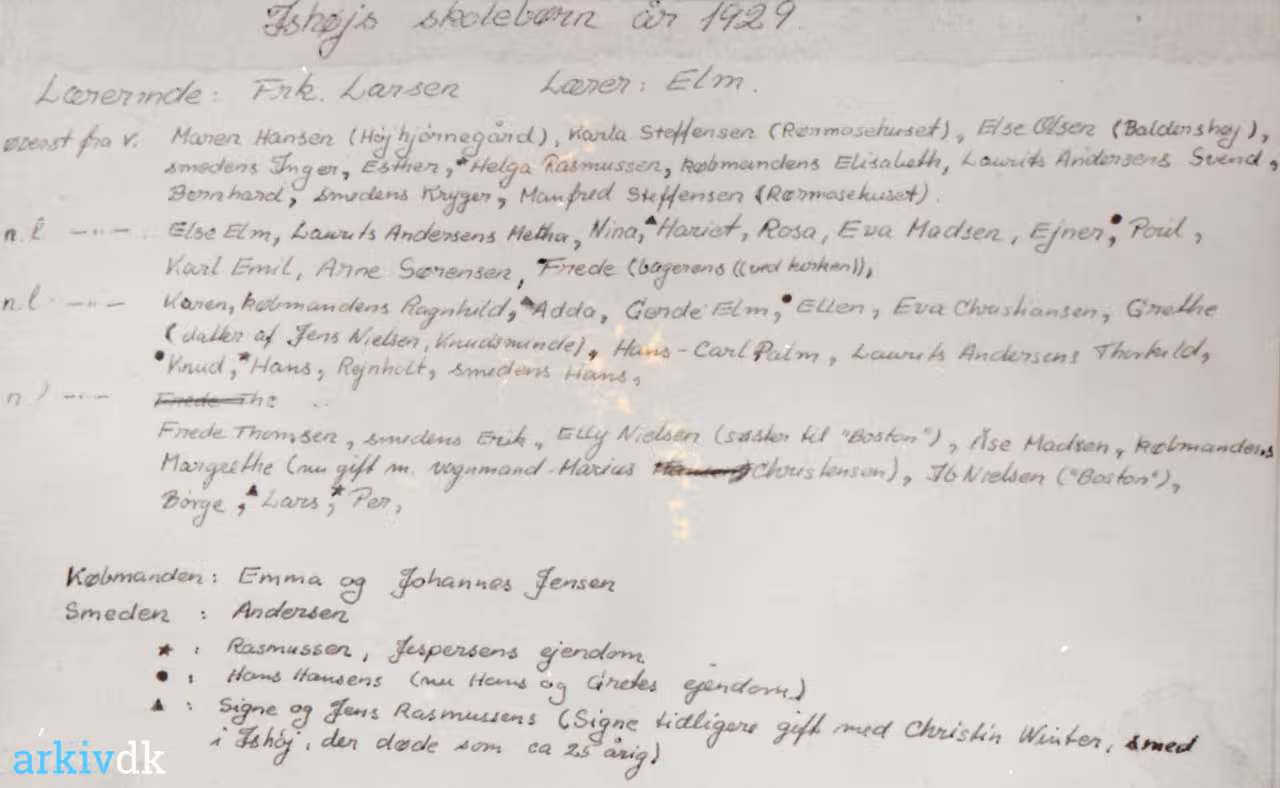 Ishøjs skolebørn år 1929.
Lærerinde: Frk. Larsen Lærer: Elm.
øverst fra v. Maren Hansen (Højhjørnegård), Karla Steffensen (Rørmosehuset), Else Olsen (Baldershøj),
smedens Inger, Esther, ★Helga Rasmussen, købmandens Elisabeth, Laurits Andersens Svend,
Bernhard, smedens Kryger, Manfred Steffensen (Rørmosehuset).
n.l. -"- Else Elm, Laurits Andersens Metha, Nina, ▲Hariet, Rosa, Eva Madsen, Ejner, ●Poul,
Karl Emil, Arne Sørensen, Frede (bagerens ((ved kirken)),
n.l. -"- Karen, købmandens Ragnhild, ▲Adda, Gerde Elm, ●Ellen, Eva Christiansen, Grethe
(datter af Jens Nielsen, Knudsminde), Hans-Carl Palm, Laurits Andersens Thorkild,
●Knud, ★Hans, Rejnholt, smedens Hans,
n.l. -"- Frede The
Frede Thomsen, smedens Erik, Elly Nielsen (søster til "Boston"), Åse Madsen, købmandens
Margrethe (nu gift m. vognmand Marius Hansen Christensen), Ib Nielsen ("Boston"),
Børge, ▲Lars, ★Per,
Købmanden: Emma og Johannes Jensen
Smeden : Andersen
★ : Rasmussen, Jespersens ejendom
● : Hans Hansens (nu Hans og Gretes ejendom)
▲ : Signe og Jens Rasmussens (Signe tidligere gift med Christin Winter, smed
i Ishøj, der døde som ca 25 årig)
arkivdk